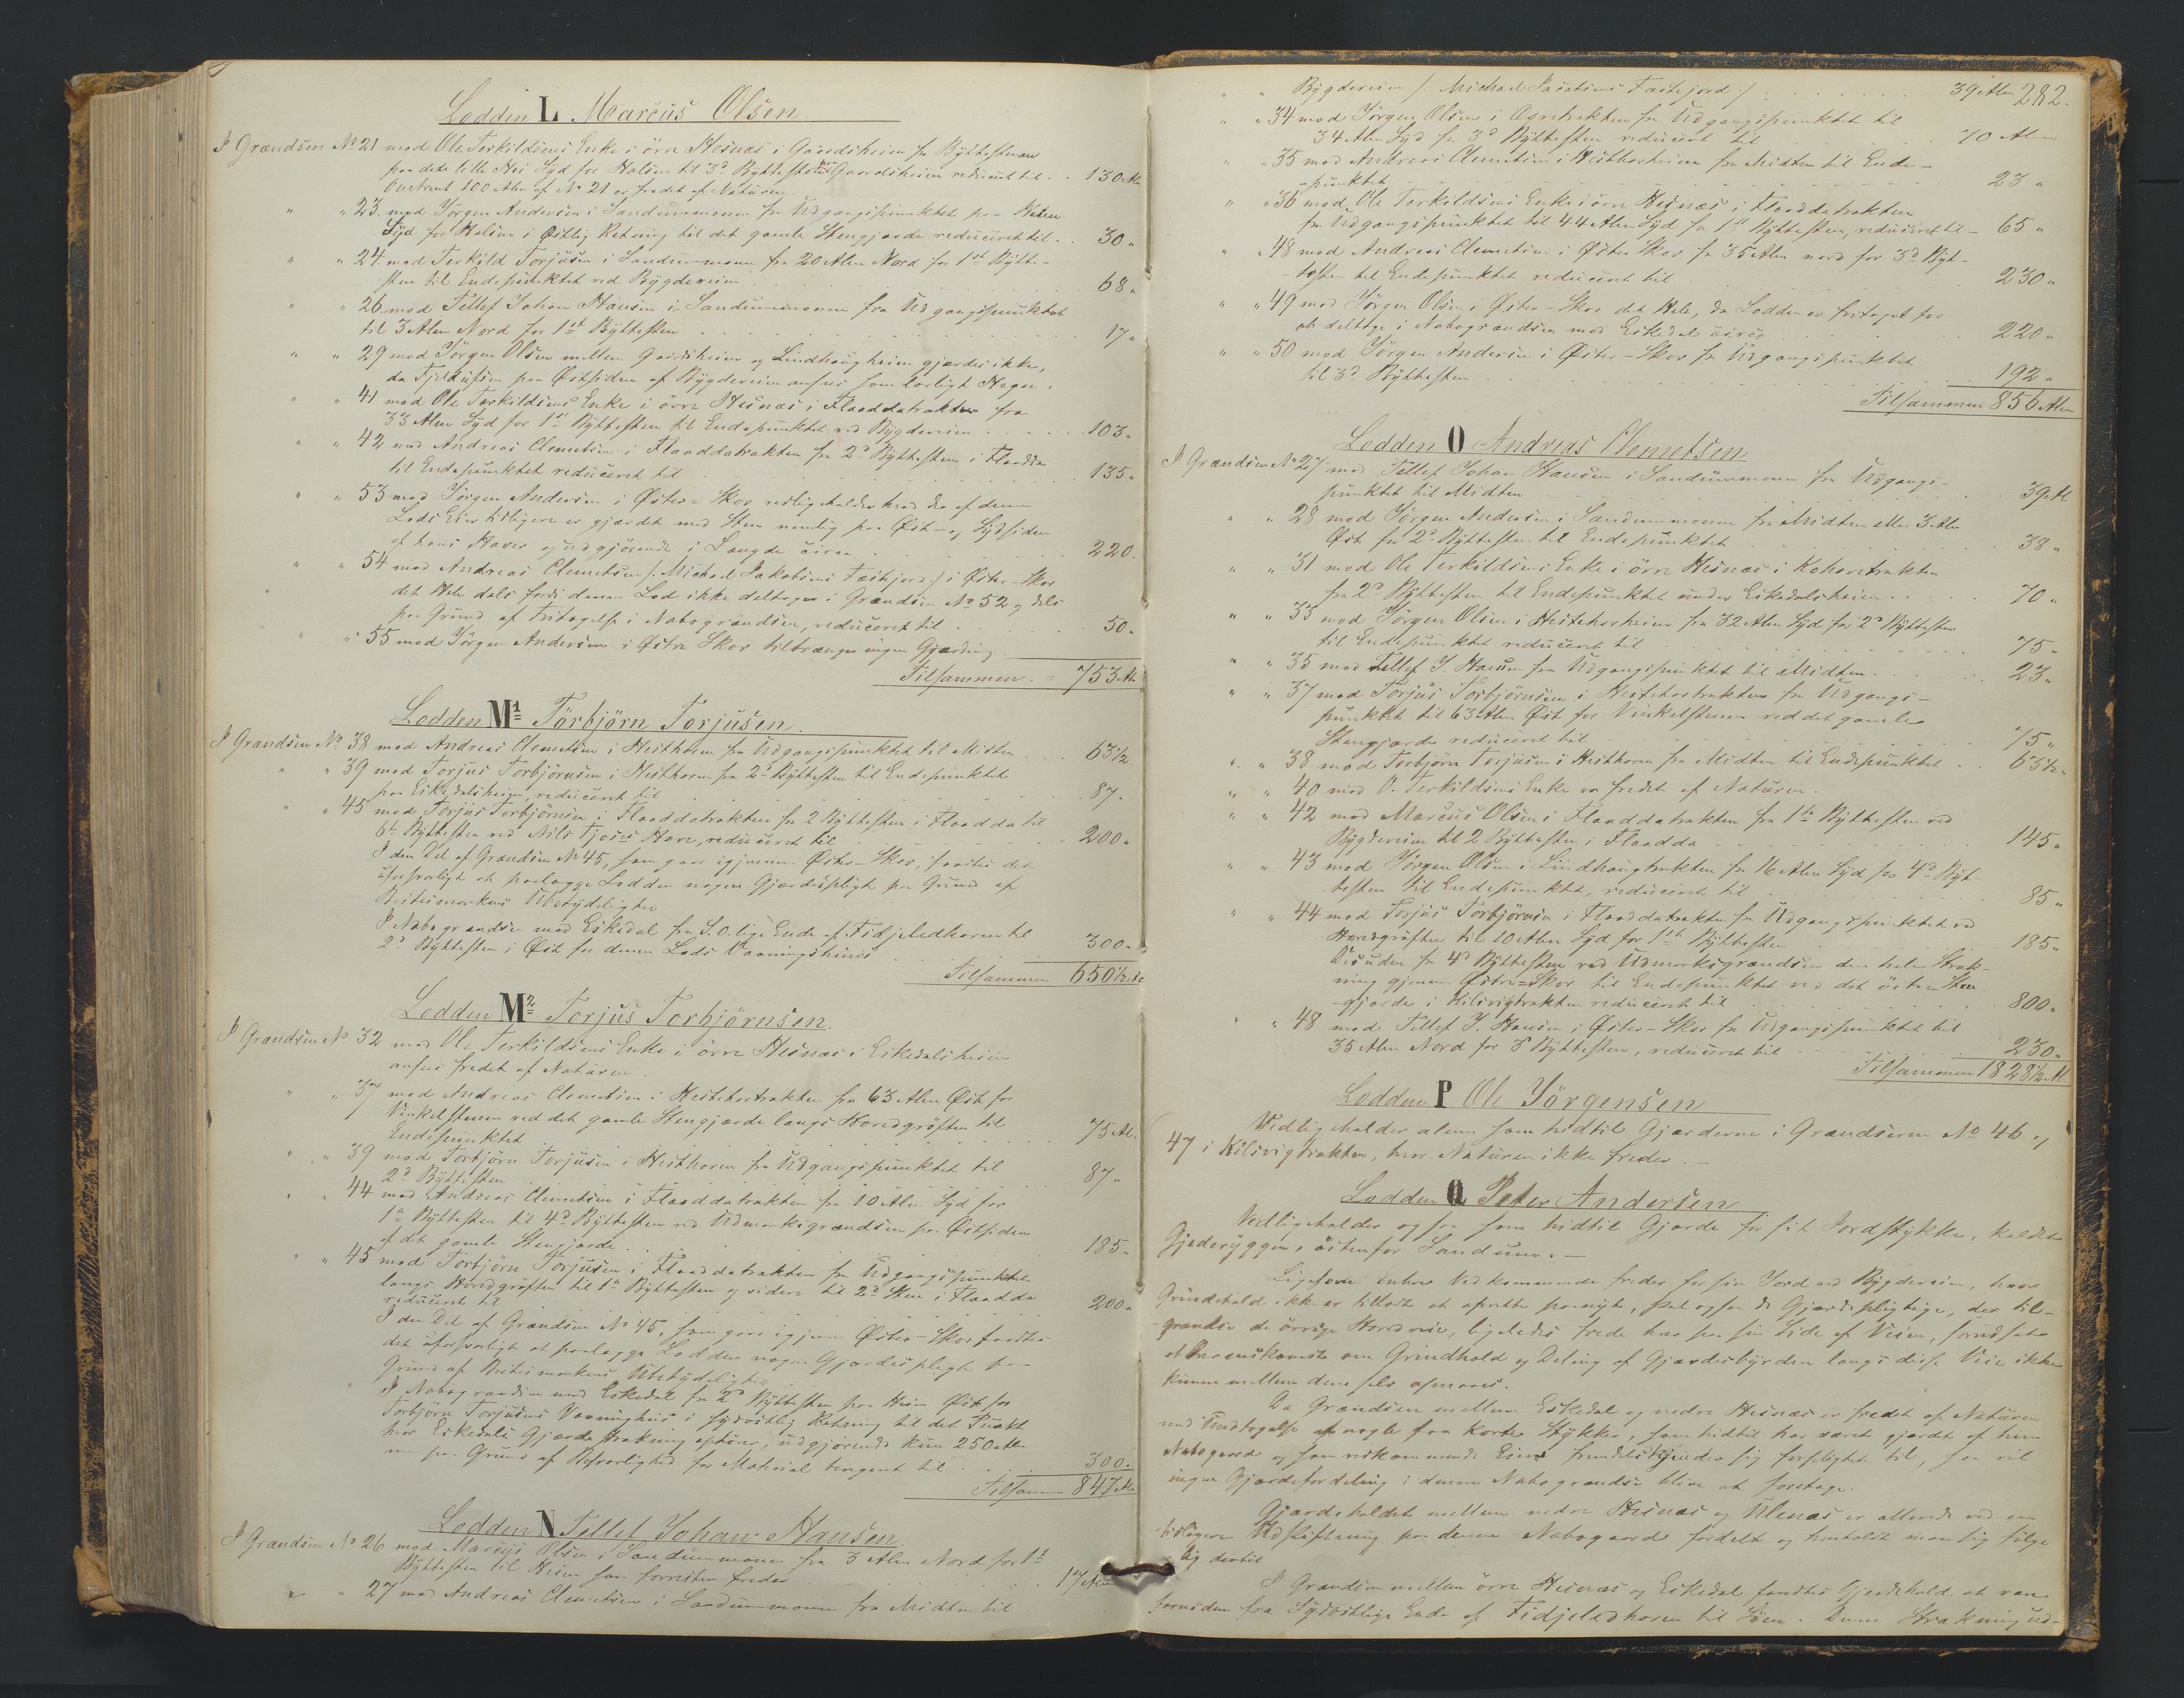 Lodden L Marcus Olsen
I Grændsen No 21 mod Ole Terkildsens Enke i övre Hesnæs i Gaardsheien fra Byttestenen
paa dette lille Hei Syd for Halsen til 3d Byttesten ved Gaardsheien reduceret til . . 130 Aln
Omtrent 100 Alen af No 21 er fredet af Naturen.
" " 23 mod Jörgen Andersen i Sandummonen fra Udgangspunktet paa Heien
Syd for Halsen i Østlig Retning til det gamle Stengjærde reduceret til . . 30 "
" " 24 mod Terkild Torjusen i Sandummonen fra 20 Alen Nord for 1st Bytte-
sten til Endepunktet ved Bygdeveien . . . 68 "
" " 26 mod Tellef Johan Hansen i Sandummonen fra Udgangspunktet
til 3 Alen Nord for 1st Byttesten . . . 17 "
" " 29 mod Jörgen Olsen mellem Gaardsheien og Lindhougheien gjærdes ikke,
da Fjeldufsen paa Østsiden af Bygdeveien ansees som lovligt Hegn.
" " 41 mod Ole Terkildsens Enke i övre Hesnæs i Flaaddatrakten fra
33 Alen Syd for 1st Byttesten til Endepunktet ved Bygdeveien . . . 103 "
" " 42 mod Andreas Clemetsen i Flaaddatrakten fra 2d Byttesten i Flaadda
til Endepunktet reduceret til . . . 135 "
" " 53 mod Jörgen Andersen i Øster-Skov vedligeholdes hvad der af denne
Lods Eier tidligere er gjærdet med Sten nemlig paa Øst- og Sydsiden
af hans Haver og udgjörende i Længde circa . . . 220.
" " 54 mod Andreas Clemetsen /: Michael Jakobsens Fæstejord :/ i Øster-Skov
det Hele dels fordi denne Lod ikke deltager i Grændsen No 52 og dels
paa Grund af Fritagelse i Nabogrændsen, reduceret til . . . 50 "
" " 55 mod Jörgen Andersen i Østre Skov tiltrænges ingen Gjærding
Tilsammen = 753 Aln
Lodden M1 Torbjörn Torjusen.
I Grændsen No 38 mod Andreas Clemetsen i Hesthoven fra Udgangspunktet til Midten . . . 63½ "
" " 39 mod Torjus Torbjörnsen i Hesthoven fra 2d Byttesten til Endepunktet
paa Eikedalsheien, reduceret til . . . 87 "
" " 45 mod Torjus Torbjörnsen i Flaaddatrakten fra 2 Byttesten i Flaadda til
6te Byttesten ved Nils Tjoses Have, reduceret til . . . 200 "
I den Del af Grændsen No 45, som gaar igjennem Øster-Skov, fandtes det
uforsvarligt at paalægge Lodden nogen Gjærdespligt paa Grund af
Beitesmarkens Ubetydelighed
I Nabograndsen med Eskedal fra S.O.lige Ende af Fidjeledhoven til
2d Byttesten i Øst for denne Lods Vaaningshuus . . . 300 "
Tilsammen 650½ Al
Lodden M2 Torjus Torbjörnsen.
I Grændsen No 32 mod Ole Terkildsens Enke i övre Hesnæs i Eskedalsheien
ansees fredet af Naturen.
" " 37 mod Andreas Clemetsen i Hestehovtrakten fra 63 Alen Øst for
Vinkelstenen ved det gamle Stengjærde langs Hovedgröften til
Endepunktet . . . 75 Al.
" " 39 mod Torbjörn Torjusen i Hesthoven fra Udgangspunktet til
2d Byttesten . . . 87 "
" " 44 mod Andreas Clemetsen i Flaaddatrakten fra 10 Alen Syd for
1st Byttesten til 4d Byttesten ved Udmarksgrændsen paa Østsiden
af det gamle Stengjærde . . . 185 "
" " 45 mod Torbjörn Torjusen i Flaaddatrakten fra Udgangspunktet
langs Hovedgröften til 1st Byttesten og videre til 2d Sten i Flaadda
reduceret til . . . 200 "
I den Del af Grændsen No 45, som gaar igjennem Øster-Skov fandtes
det uforsvarligt at paalægge Lodden nogen Gjærdespligt paa
Grund af Beitesmarkens Ubetydelighed
I Nabograndsen med Eskedal fra 2d Byttesten paa Heien Øst for
Torbjörn Torjusens Vaaninghus i sydöstlig Retning til det Punkt
hvor Eskedals Gjærdestrækning ophörer, udgjörende kun 250 Alen
men paa Grund af Besværlighed for Material beregnet til . . . 300 "
Tilsammen 847 Aln
Lodden N Tellef Johan Hansen.
I Grændsen No 26 mod Marcus Olsen i Sandummonen fra 3 Alen Nord for 1st
Byttesten til Heien som forresten freder . . . 17 Alen
" " 27 mod Andreas Clemetsen i Sandummonen fra Midten til
282.
" " Bygdeveien /: Michael Jacobsens Fæstejord :/ . . . 39 Alen
" " 34 mod Jörgen Olsen i Agretrakten fra Udgangspunktet til
34 Alen Syd for 3d Byttesten reduceret til . . . 70 Alen
" " 35 mod Andreas Clemetsen i Hesthovheien fra Midten til Ende-
-punktet . . . 23 "
" " 36 mod Ole Terkildsens Enke i övre Hesnæs i Flaaddatrakten
fra Udgangspunktet til 44 Alen Syd for 1st Byttesten, reduceret til - 65 "
" " 48 mod Andreas Clemetsen i Øster Skov fra 35 Alen nord for 3d Byt-
testen til Endepunktet reduceret til . . . 230 "
" " 49 mod Jörgen Olsen i Øster-Skov det Hele, da Lodden er fritaget for
at deltage i Nabogrændsen med Eskedal circa . . . 220 "
" " 50 mod Jörgen Andersen i Øster-Skov fra Udgangspunktet
til 3d Byttesten . . . 192 "
Tilsammen 856 Alen
Lodden O Andreas Clemetsen
I Grændsen No 27 mod Tellef Johan Hansen i Sandummonen fra Udgangs-
punktet til Midten . . . 39 Al.
" " 28 mod Jörgen Andersen i Sandummonen fra Midten eller 3 Aln
Øst for 2d Byttesten til Endepunktet . . . 38 "
" " 31 mod Ole Terkildsens Enke i övre Hesnæs i Kohovetrakten
fra 2d Byttesten til Endepunktet under Eskedalsheien . . . 70 "
" " 33 mod Jörgen Olsen i Hestehovheien fra 32 Alen Syd for 2d Byttesten
til Endepunktet reduceret til . . . 75 "
" " 35 mod Tellef J. Hansen fra Udgangspunktet til Midten . . . 23 "
" " 37 mod Torjus Torbjörnsen i Hestehovtrakten fra Udgangs-
punktet til 63 Alen Øst for Vinkelstenen ved det gamle
Stengjærde reduceret til . . . 75 "
" " 38 mod Torbjörn Torjusen i Hesthoven fra Midten til Endepunktet . . 63½ "
" " 40 mod O. Terkildsens Enke er fredet af Naturen.
" " 42 mod Marcus Olsen i Flaaddatrakten fra 1ste Byttesten ved
Bygdeveien til 2 Byttesten i Flaadda . . . 145 "
" " 43 mod Jörgen Olsen i Lindhougtrakten fra 16 Alen Syd for 4d Byt-
testen til Endepunktet, reduceret til . . . 85 "
" " 44 mod Torjus Torbjörnsen i Flaaddatrakten fra Udgangspunktet ved
Hovedgröften til 10 Alen Syd for 1st Byttesten . . . 185 "
Desuden fra 4d Byttesten ved Udmarksgrændsen den hele Stræk-
ning gjennem Østre-Skov til Endepunktet ved det östre Sten-
-gjærde i Kilsvigtrakten reduceret til . . . 800 "
" " 48 mod Tellef J. Hansen i Øster-Skov fra Udgangspunktet til
35 Alen Nord for 3 Byttesten, reduceret til . . . 230 "
Tilsammen 1828½ Al
Lodden P Ole Jörgensen
Vedligeholder alene som hidtil Gjærderne i Grændserne No 46 og
47 i Kilsvigtrakten, hvor Naturen ikke freder. -
Lodden Q Peter Andersen
Vedligeholder ogsaa som hidtil Gjærde for sit Jordstykke, kaldet
Gjederyggen, östenfor Sandum. -
Ligesom enhver Vedkommende freder for sin Jord ved Bygdeveien, hvor
Grindehold ikke er tilladt at oprette paany, skal ogsaa de Gjærdepligtige, der til-
grændse de övrige Hovedveie, ligeledes frede hver paa sin Side af Veien, forudsat
at Overenskomst om Grindhold og Deling af Gjærdesbyrden langs disse Veie ikke
kunne mellem dem selv opnaaes.
Da Grændsen mellem Eskedal og nedre Hesnæs er fredet af Naturen
med Undtagelse af nogle faa korte Stykker, som hidtil har været gjærdet af hin
Nabogaard og som vedkommende Eiere fremdeles kjender sig forpligtet til, saa vil
ingen Gjærdefordeling i denne Nabogrændse blive at foretage.
Gjærdeholdet mellem nedre Hesnæs og Ulenæs er allerede ved en
tidligere Udskiftning paa denne Nabogaard fordelt og henholdt man sig fölge-
lig dertil
I Grændsen mellem övre Hesnæs og Eskedal fandtes Gjærdehold at være
fornöden fra Sydöstlige Ende af Fidjeledhoven til Söen. Denne Strækning ud-